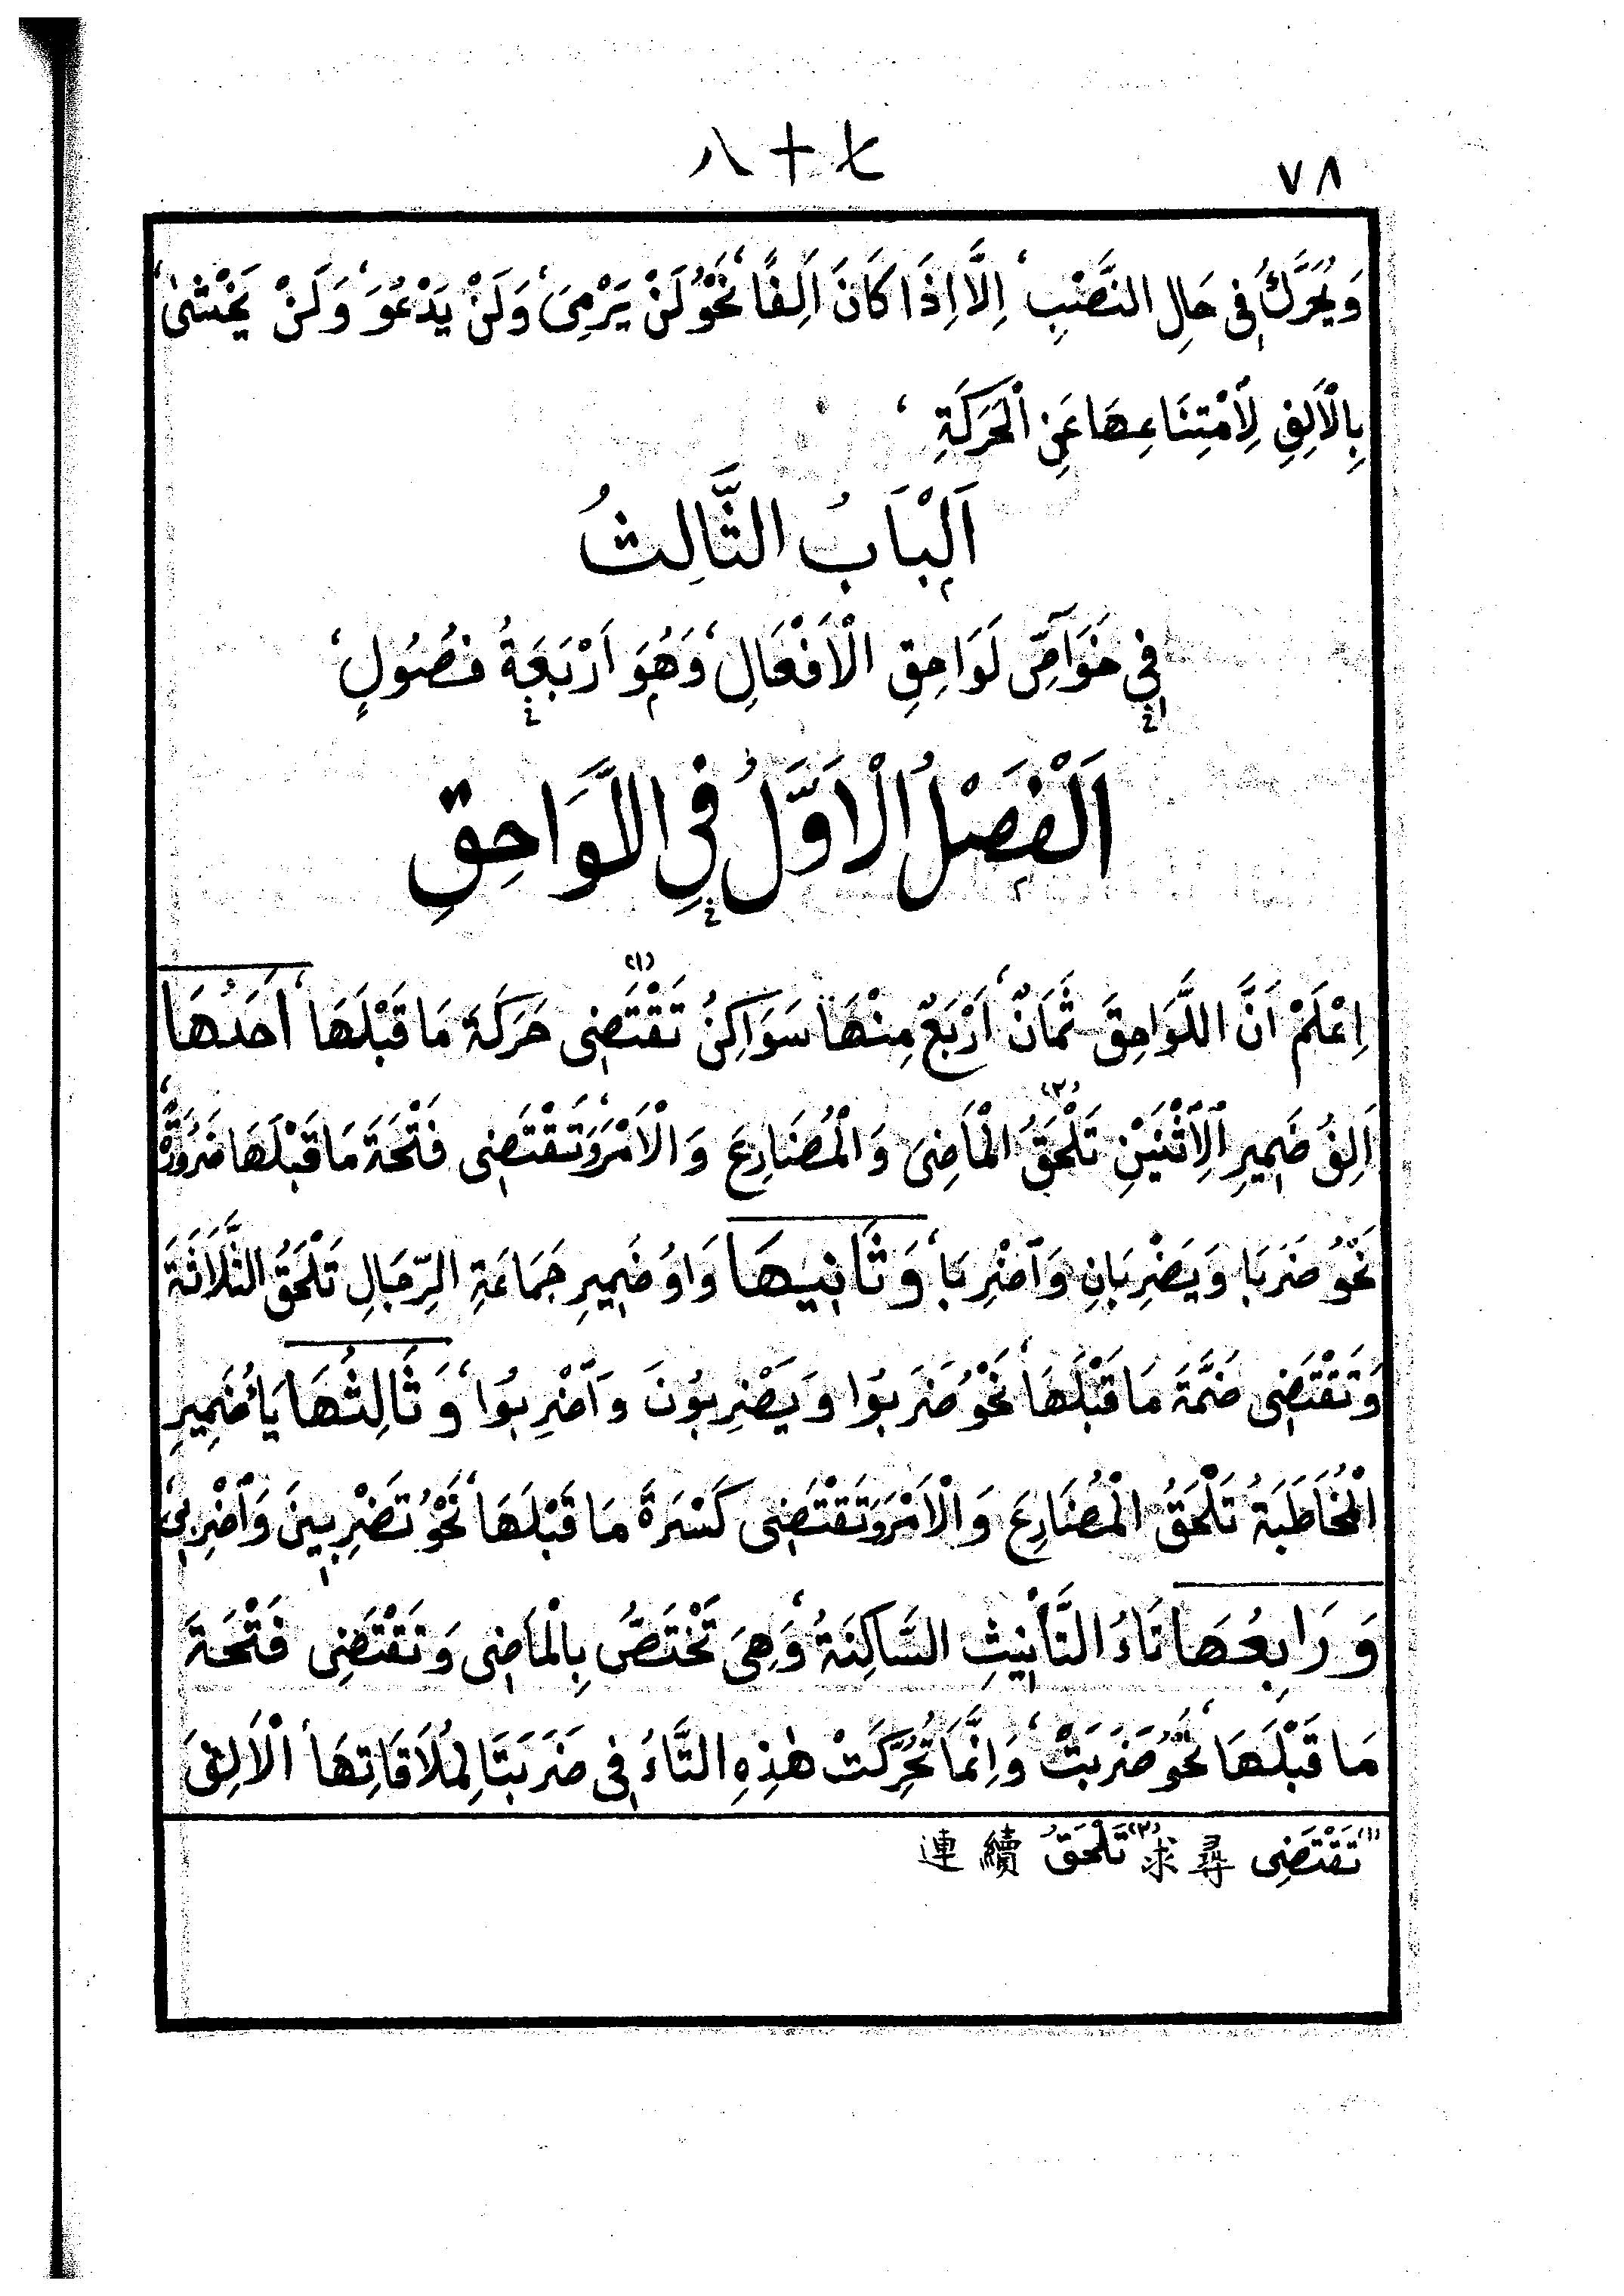 八十七
٧٨
وَيُحَرَّكُ فِى حَالِ النَّصْبِ، اِلَّا اِذَا كَانَ اَلِفًا، نَحْوُ لَنْ يَرْمِىَ، وَلَنْ يَدْعُوَ، وَلَنْ يَخْشٰى،
بِالْاَلِفِ لِاُمْتِنَاعِهَا عَنِ الْحَرَكَةِ،
اَلْبَابُ الثَّالِثُ
فِي خَوَآصِّ لَوَاحِقِ الْاَفْعَالِ، وَهُوَ اَرْبَعَةُ فُصُولٍ،
اَلْفَصْلُ الْاَوَّلُ فِي اللَّوَاحِقِ
اِعْلَمْ اَنَّ اللَّوَاحِقَ ثَمَانٌ، اَرْبَعٌ مِنْهَا سَوَاكِنُ تَقْتَضِى (١) حَرَكَةَ مَا قَبْلَهَا، اَحَدُهَا
اَلِفُ ضَمِيرِ ٱلِٱثْنَيْنِ تَلْحَقُ (٢) الْمَاضِىَ وَالْمُضَارِعَ وَالْاَمْرَ، وَتَقْتَضِى فَتْحَةَ مَا قَبْلَهَا ضَرُورَةً،
نَحْوُ ضَرَبَا وَيَضْرِبَانِ وَٱضْرِبَا، وَثَانِيهَا وَاوُ ضَمِيرِ جَمَاعَةِ الرِّجَالِ تَلْحَقُ الثَّلَاثَةَ
وَتَقْتَضِى ضَمَّةَ مَا قَبْلَهَا، نَحْوُ ضَرَبُوا وَيَضْرِبُونَ وَٱضْرِبُوا، وَثَالِثُهَا يَاءُ ضَمِيرِ
الْمُخَاطَبَةُ تَلْحَقُ الْمُضَارِعَ وَالْاَمْرَ وَتَقْتَضِى كَسْرَةَ مَا قَبْلَهَا، نَحْوُ تَضْرِبِينَ وَٱضْرِبِى،
وَرَابِعُهَا تَاءُ التَّأْنِيثِ السَّاكِنَةُ، وَهِىَ تَخْتَصُّ بِالْمَاضِى وَتَقْتَضِى فَتْحَةَ
مَا قَبْلَهَا، نَحْوُ ضَرَبَتْ، وَاِنَّمَا تُحُرِّكَتْ هٰذِهِ التَّاءُ فِى ضَرَبَتَا لِمُلَاقَاتِهَا، الْاَلِفَ
(١) تَقْتَضِى 尋求 (٢) تَلْحَقُ 續連